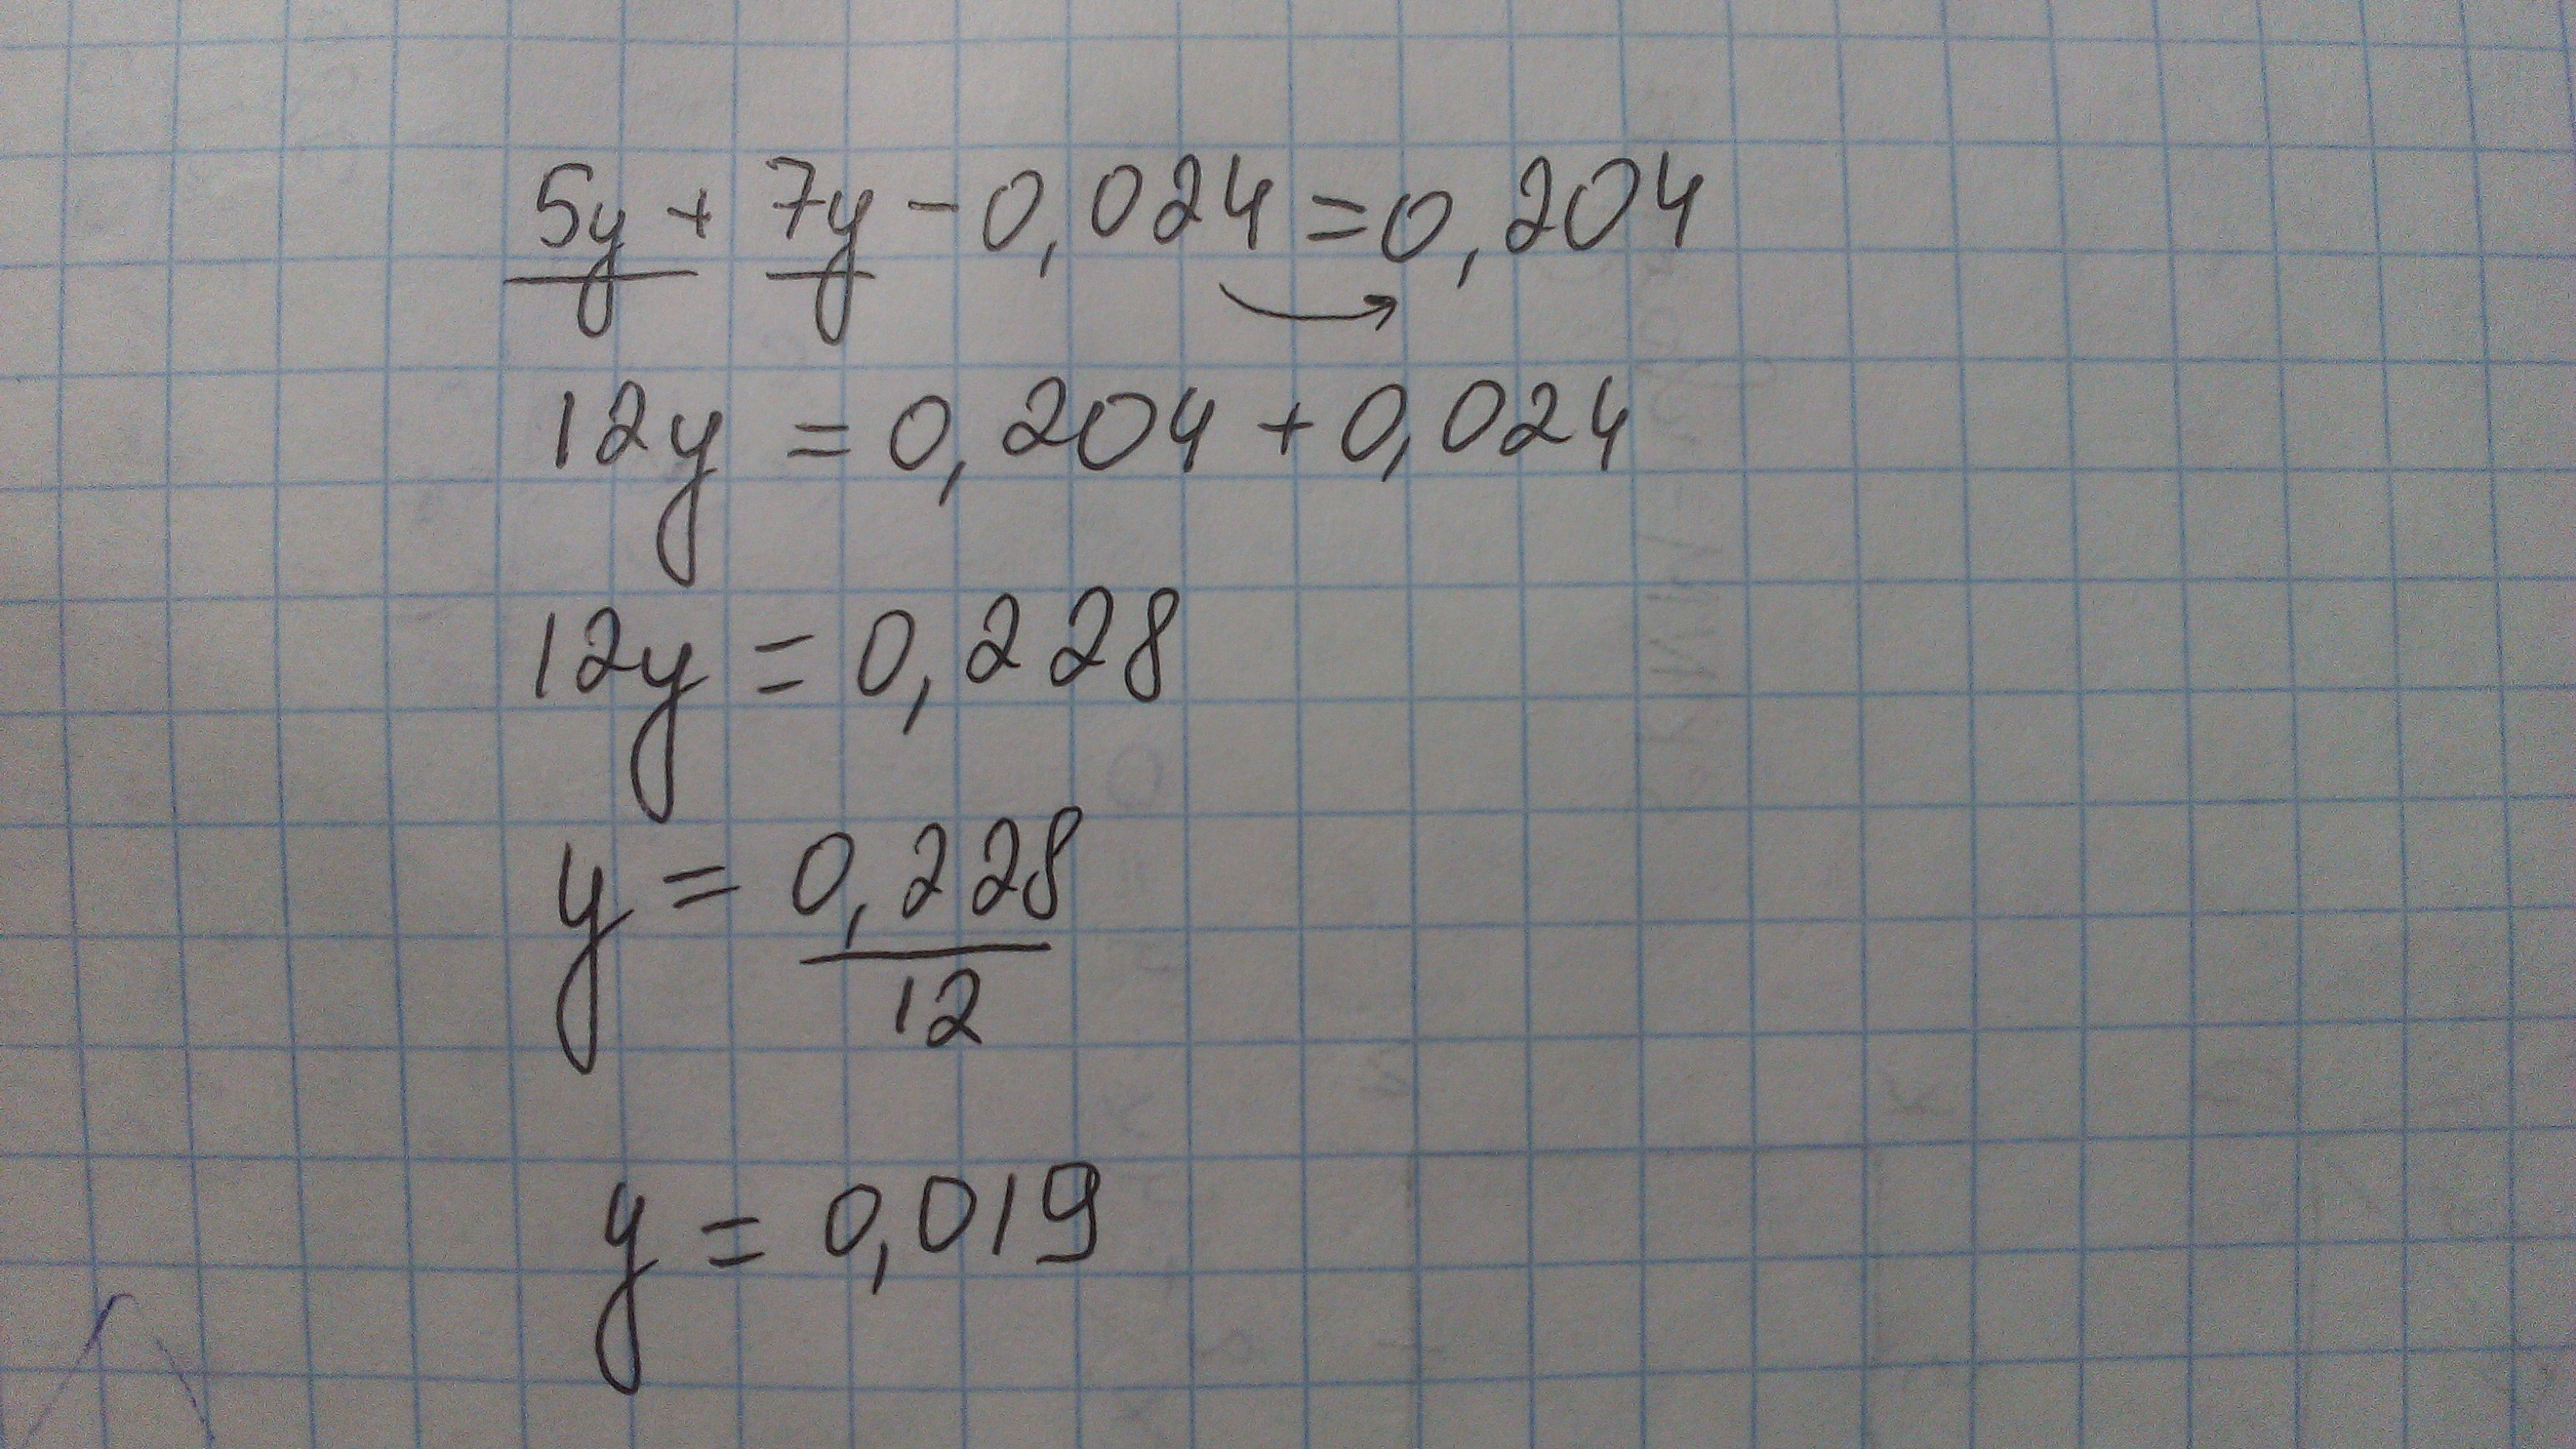 5y + 7y - 0,024 = 0,204
12y = 0,204 + 0,024
12y = 0,228
y = 0,228
12
y = 0,019